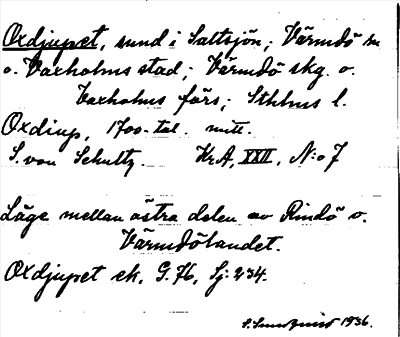 Oxdjupet, sund i Saltsjön; Värmdö sn
o. Vaxholms stad; Värmdö skg. o.
Vaxholms förs; Sthlms l.
Oxdiup, 1700-tal. mitt.
S. von Schultz. Kr.A, XXII, N:o 7
Läge mellan östra delen av Rindö o.
Värmdölandet.
Oxdjupet ek. G. 76, Sj: 234.
S. 1936.